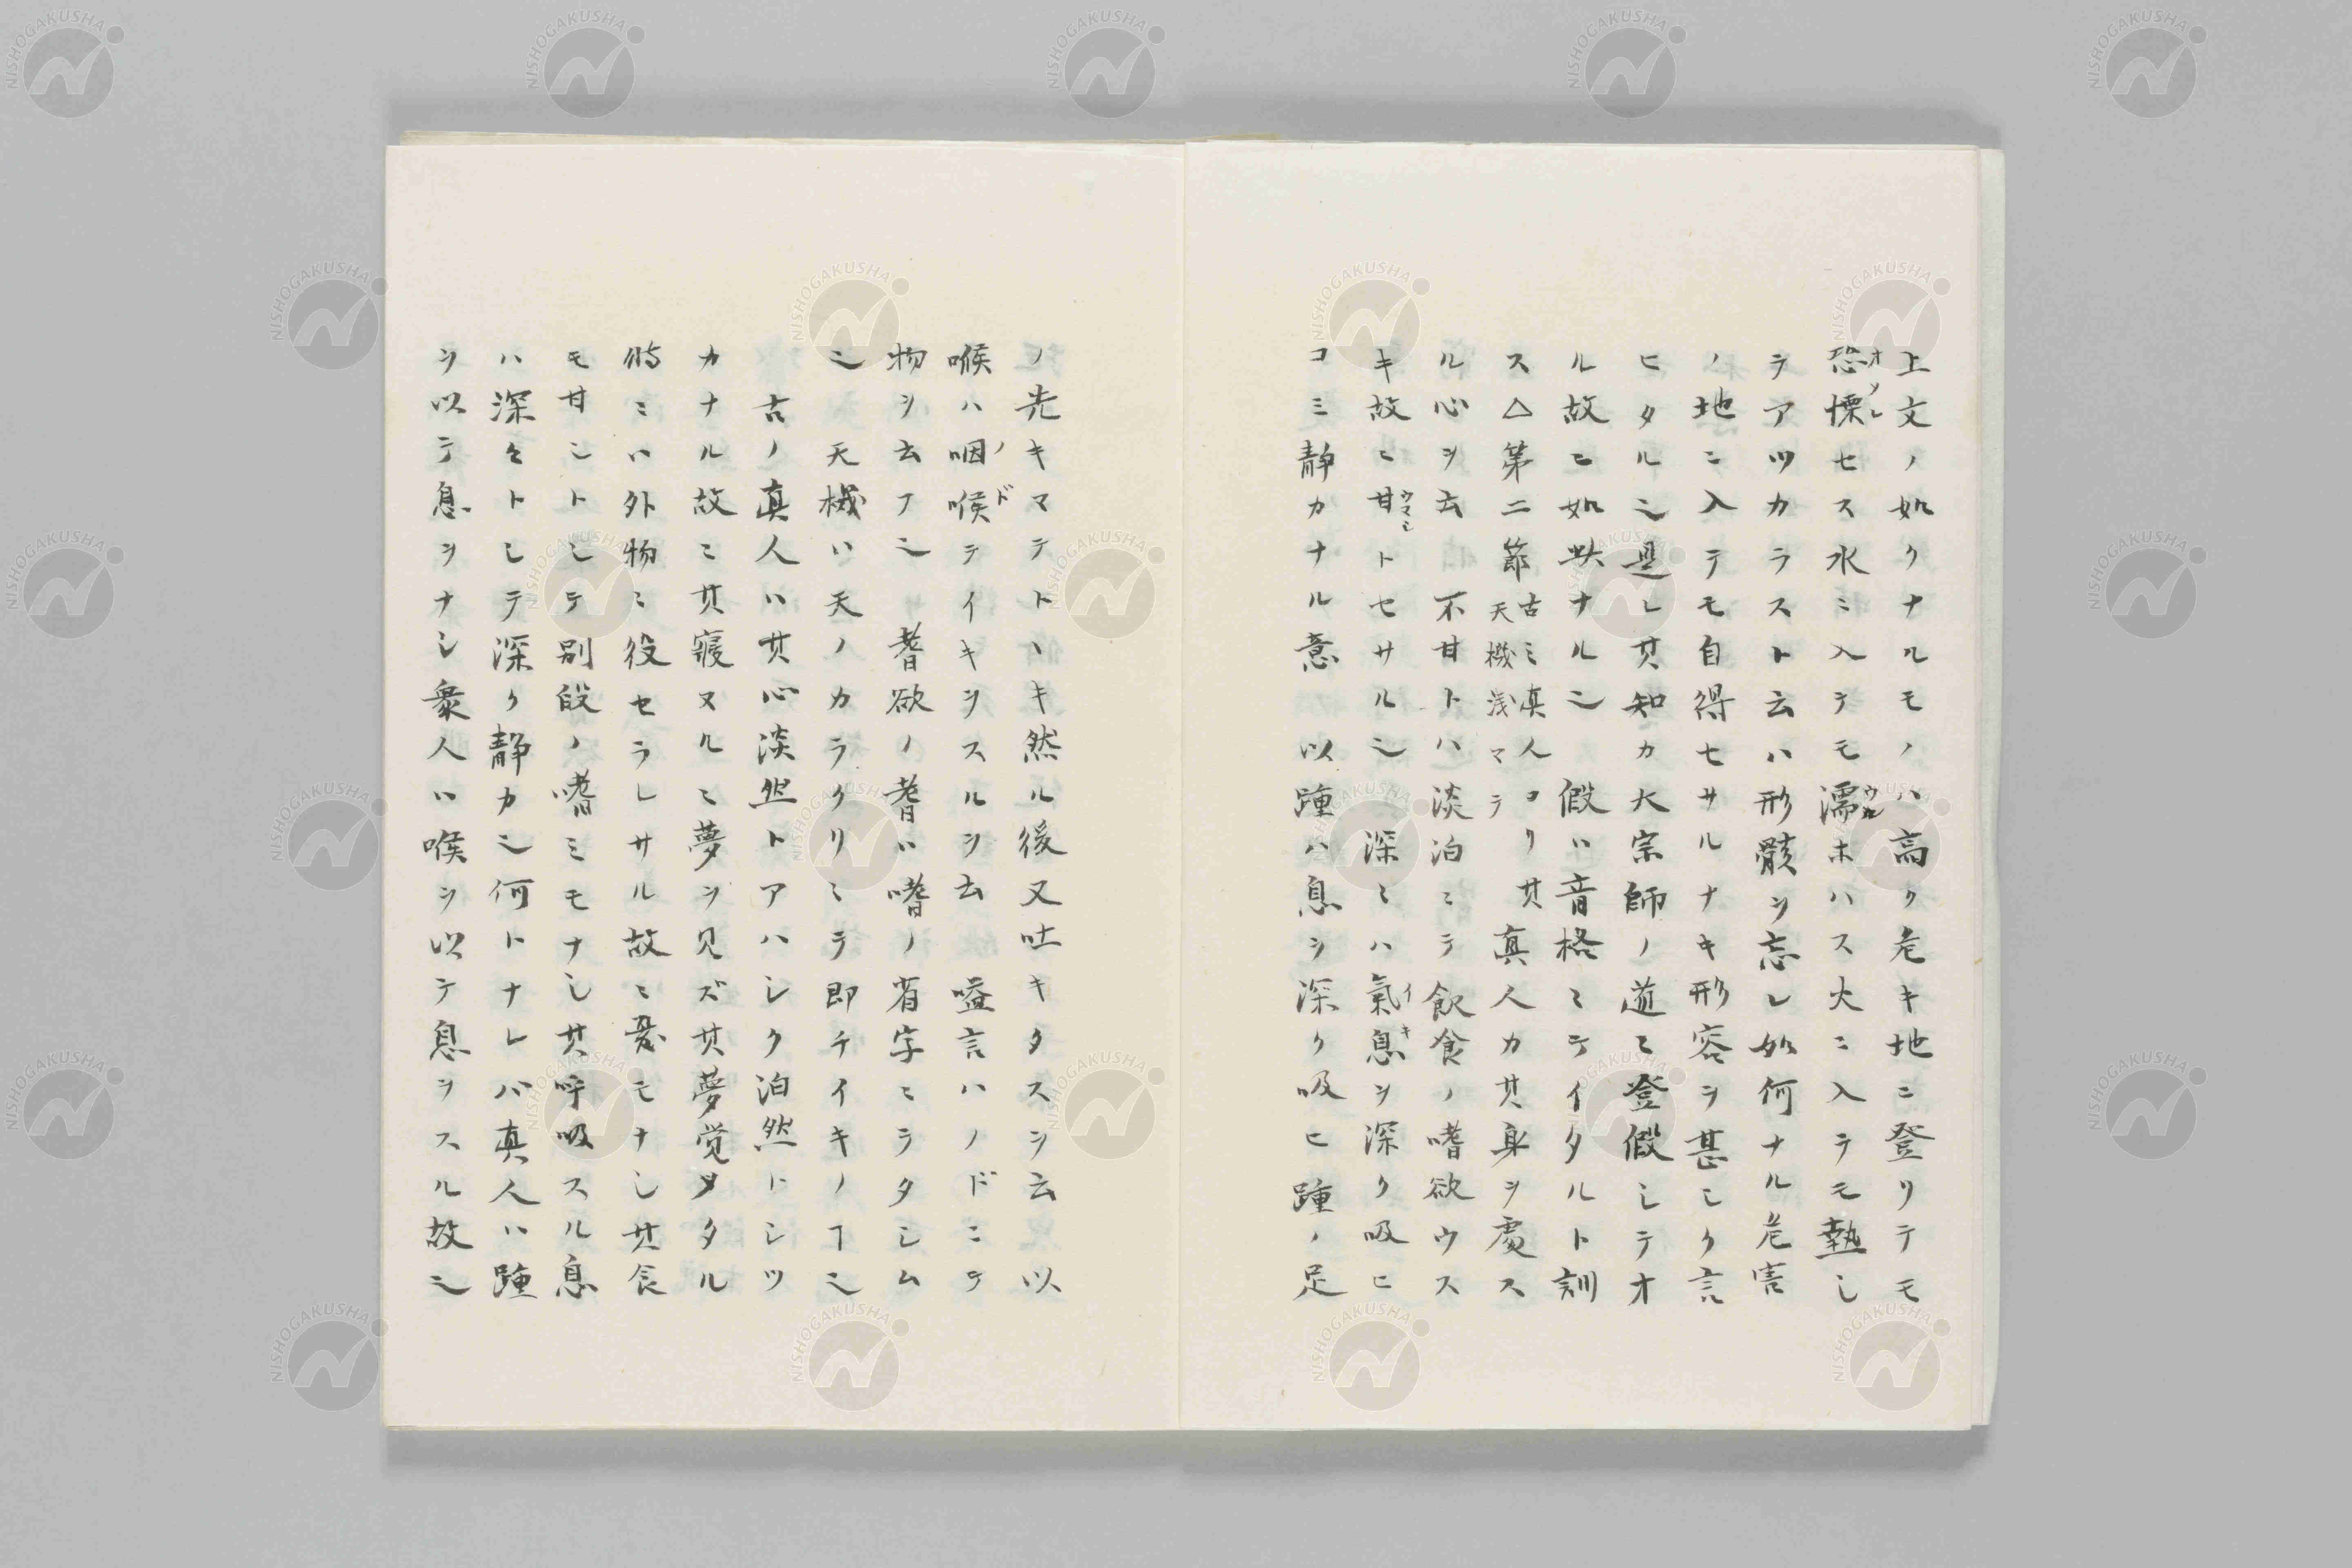 上文ノ如クナルモノハ高ク危キ地ニ登リテモ
恐慄セス水ニ入テモ濡ホハス火ニ入テモ熱シ
テアツカラスト云ハ形骸ヲ忘レ如何ナル危害
ノ地ニ入テモ自得セサルナキ形容ヲ甚シク言
ヒタル也是レ其知カ大宗師ノ道ニ登假シテオ
ル故ニ如此ナル也 假ハ音格ニテイタルト訓
ス△第二節古ミ真人ヨリ其天機浅マテ真人カ其身ヲ處ス
ル心ヲ云 不甘トハ淡泊ニテ飲食ノ嗜欲ウス
キ故ニ甘トセサル也 深ミハ氣息ヲ深ク吸ヒ
コミ静カナル意 以踵ハ息ヲ深ク吸ヒ踵ノ足
ノ先キマテトヽキ然ル後又吐キタスヲ云 以
喉ハ咽喉テイキヲスルヲ云 嗌言ハノドニテ
物ヲ云フ也 耆欲ノ耆ハ嗜ノ省字ニシタシム
也 天機ハ天ノカラクリニテ即チイキノヿ也
古ノ真人ハ其心淡然トアハシク泊然トシツ
カナル故ニ其寢ヌルニ夢ヲ見ズ其夢覚メタル
時ニハ外物ニ役セラレサル故ニ憂モナシ其食
モ甘シトシテ別段ノ嗜ミモナシ其呼吸スル息
ハ深々トシテ深ク静カ也何トナレバ真人ハ踵
ヲ以テ息ヲナシ衆人ハ喉ヲ以テ息ヲスル故也
オソレ
ウル
ウマシ
イキ
ノド
NISHOGAKUSHA